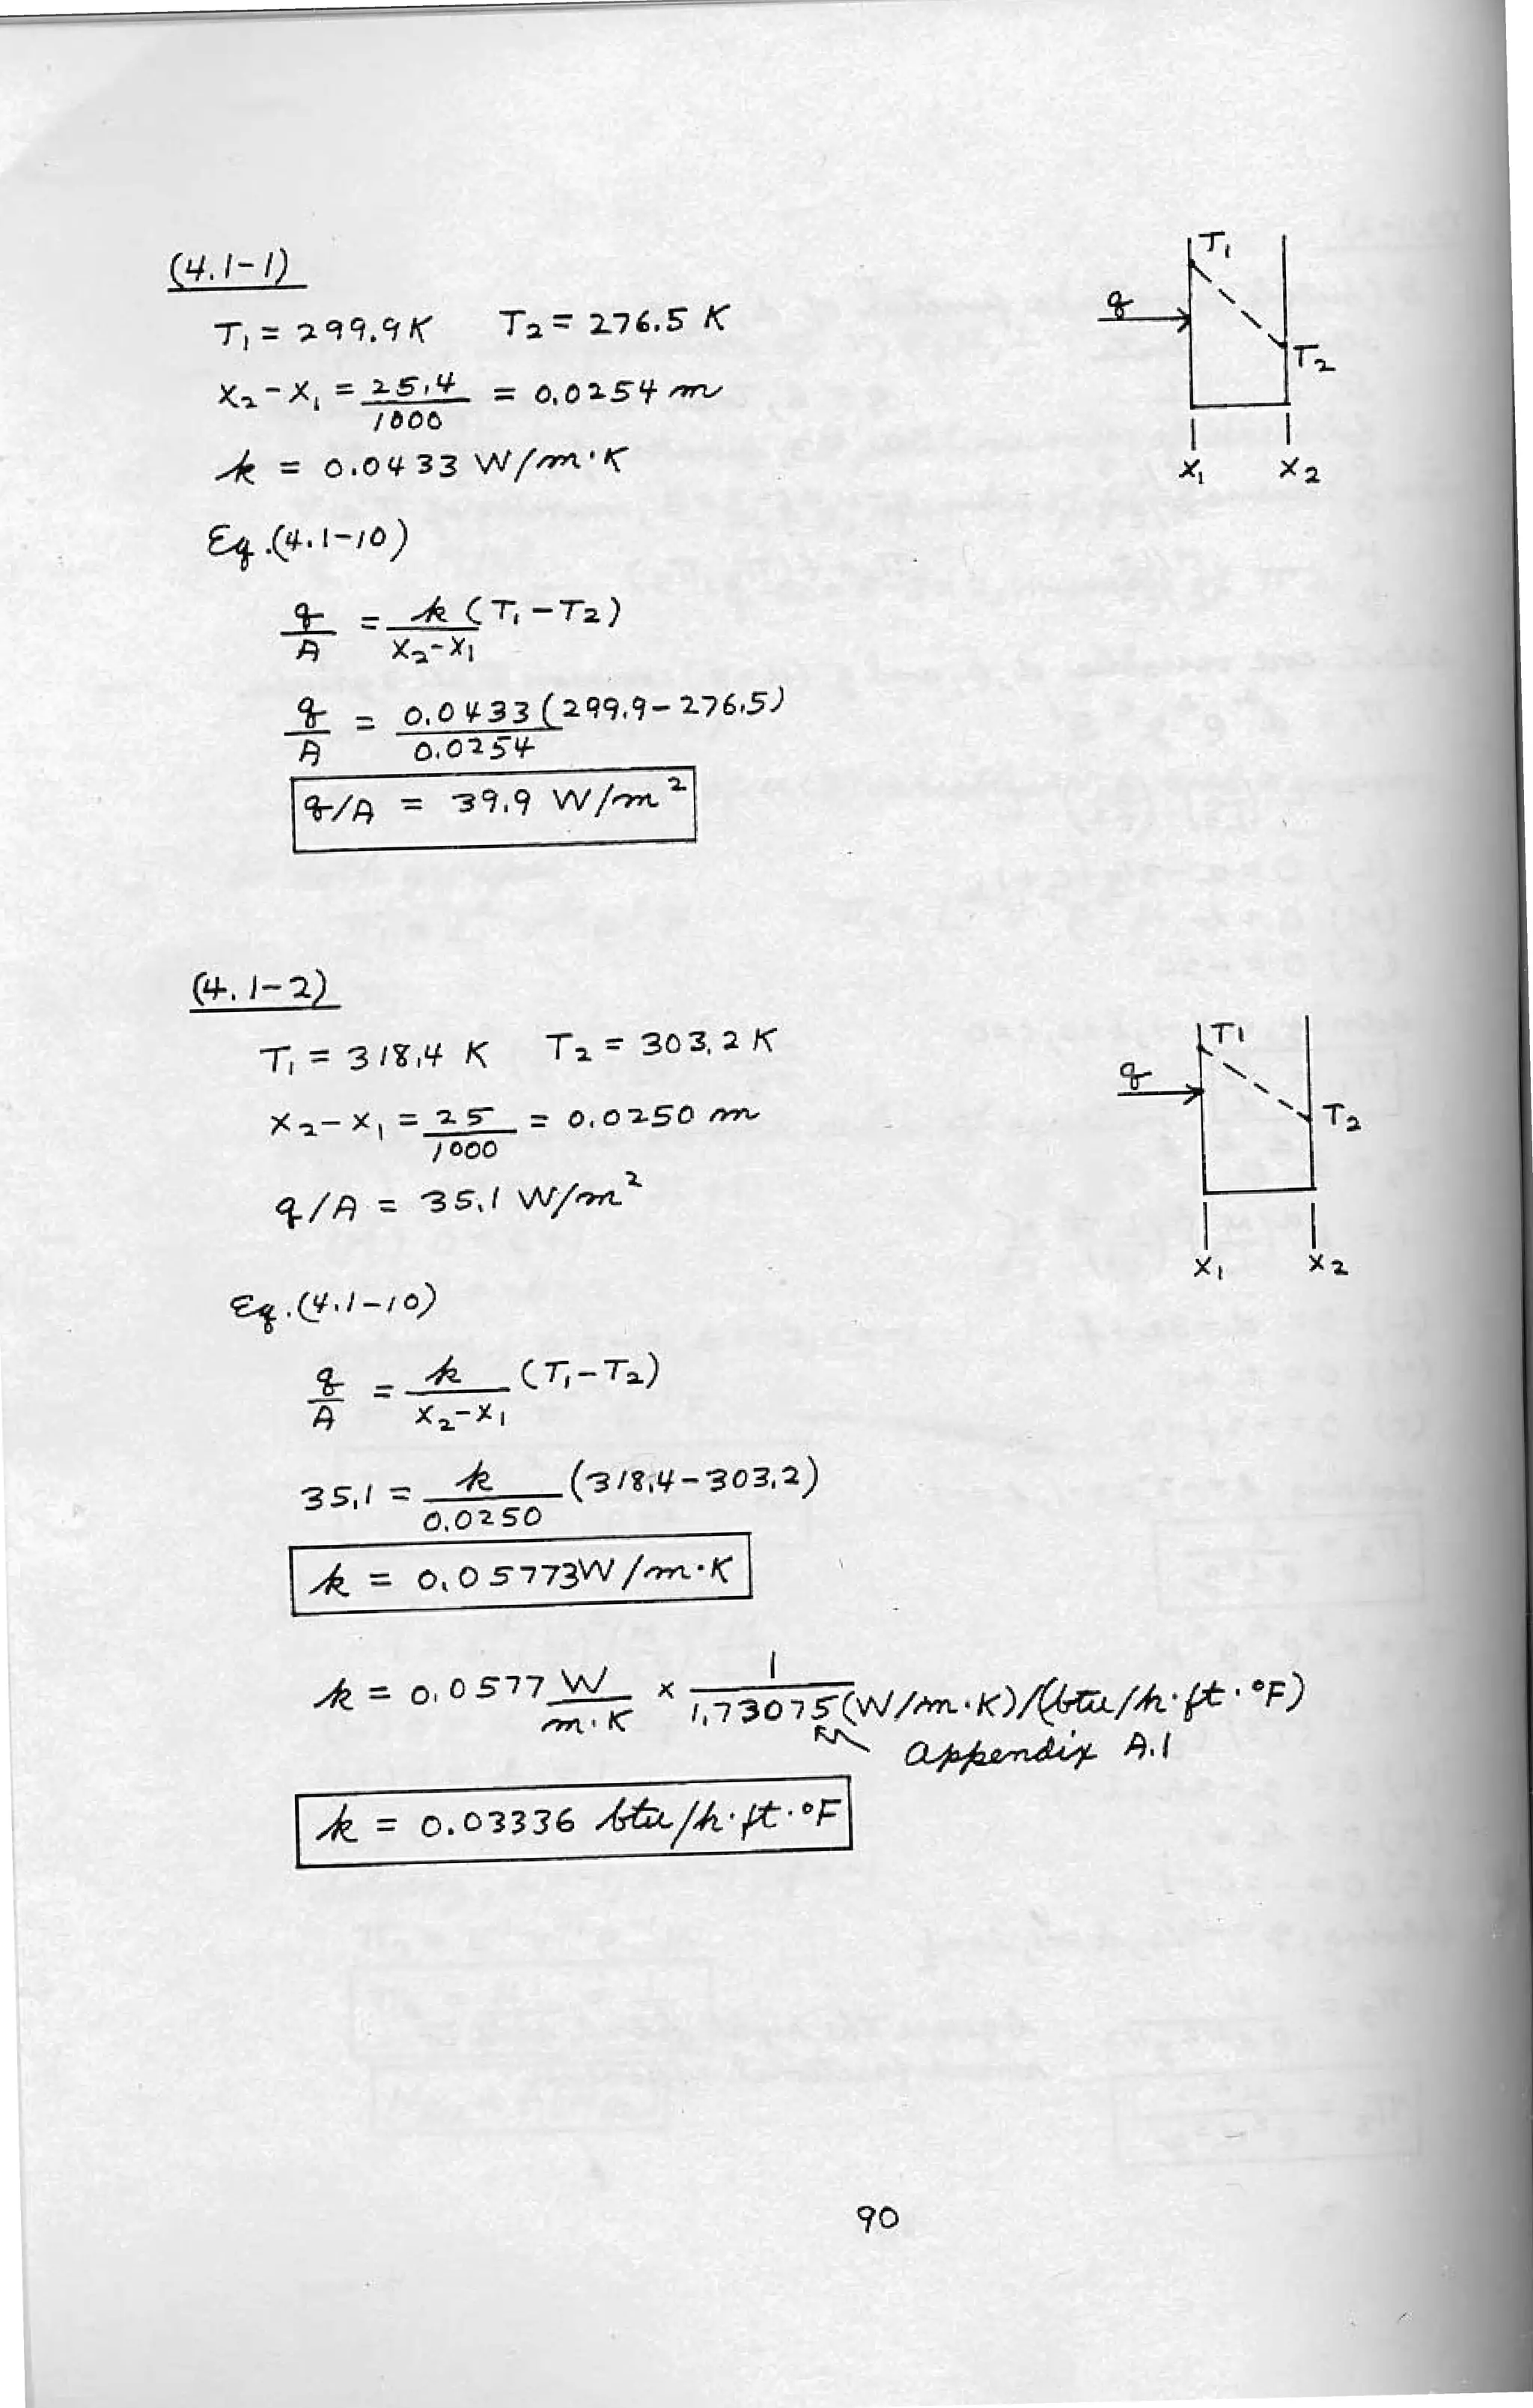 (4.1-1)
T₁ = 299.9 K   T₂ = 276.5 K
x₂ - x₁ = 25.4/1000 = 0.0254 m
k = 0.0433 W/m·K
Eq.(4.1-10)
q/A = k/(x₂-x₁) (T₁ - T₂)
q/A = 0.0433/0.0254 (299.9 - 276.5)
q/A = 39.9 W/m²
T₁
q
T₂
x₁ x₂
(4.1-2)
T₁ = 318.4 K   T₂ = 303.2 K
x₂ - x₁ = 25/1000 = 0.0250 m
q/A = 35.1 W/m²
Eq.(4.1-10)
q/A = k/(x₂-x₁) (T₁-T₂)
35.1 = k/0.0250 (318.4-303.2)
k = 0.05773 W/m·K
k = 0.0577 W/m·K × 1/1.73075 (W/m·K)/(btu/h·ft·°F)
Appendix A.1
k = 0.03336 btu/h·ft·°F
T₁
q
T₂
x₁ x₂
90